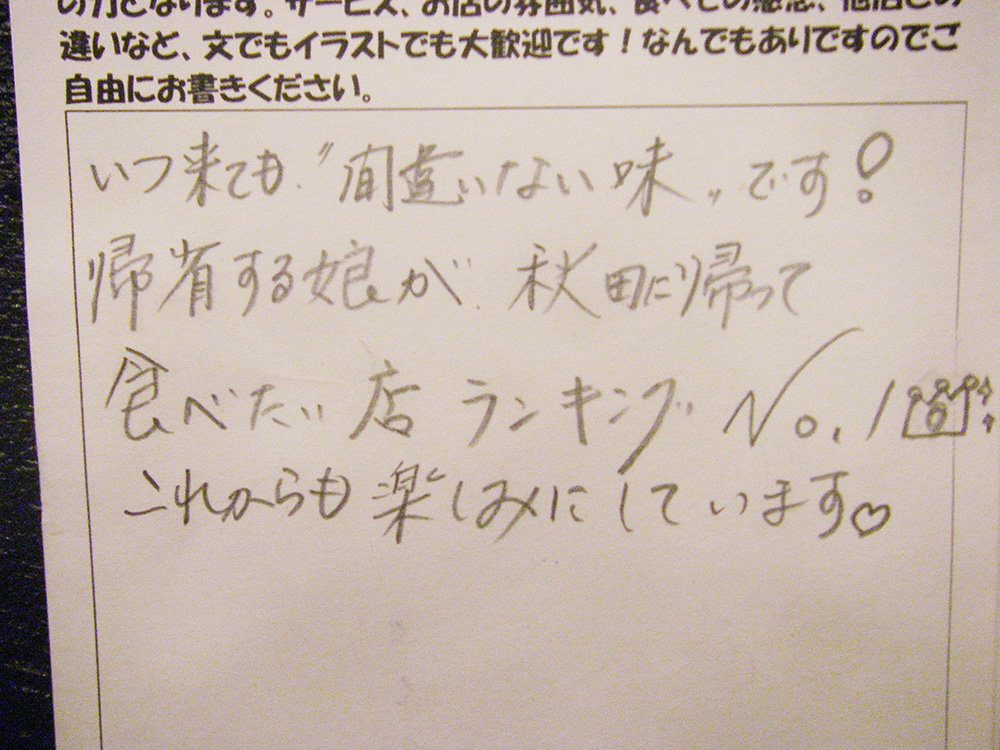 の力となります。サービス、お店の雰囲気、食べての感想、他店との
違いなど、文でもイラストでも大歓迎です!なんでもありですのでご
自由にお書きください。
いつ来ても“間違いない味”です!
帰省する娘が秋田に帰って
食べたい店ランキングNo.1
これからも楽しみにしています♡